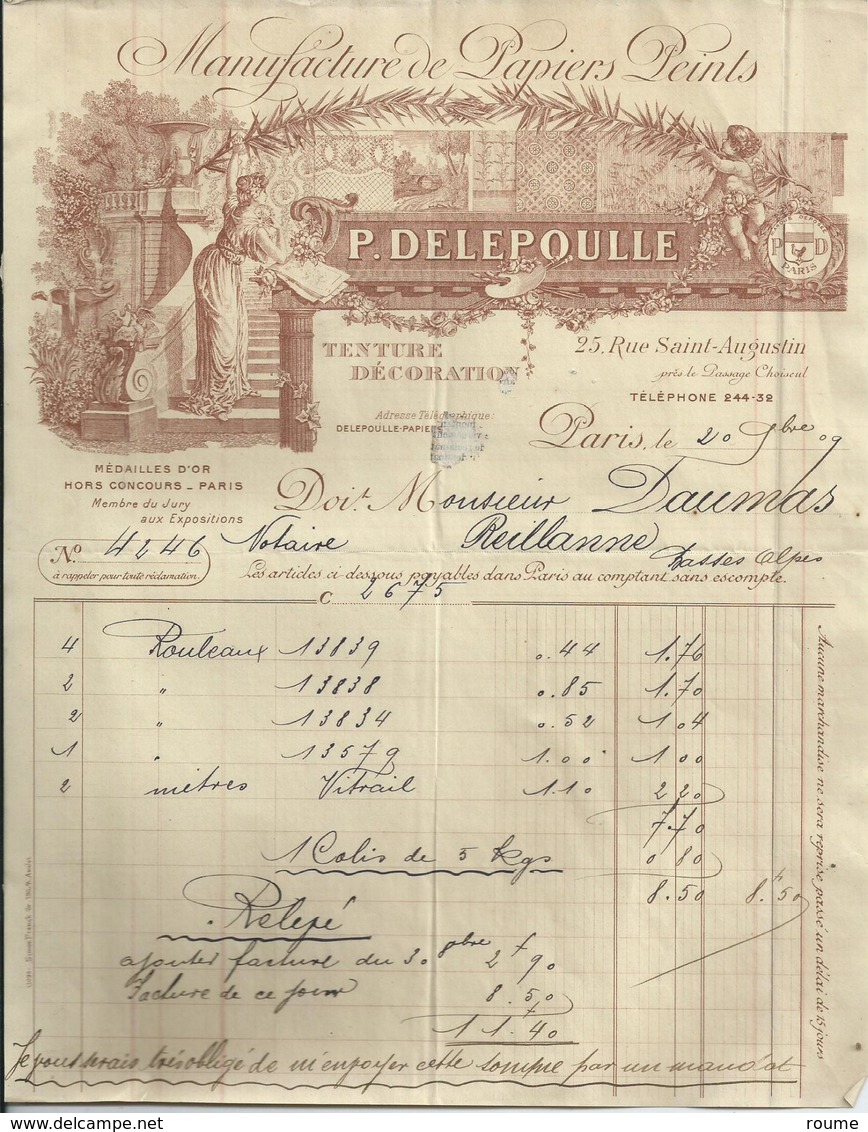 Manufacture de Papiers Peints
P. DELEPOULLE
P D
PARIS
TENTURE
DÉCORATION
25, Rue Saint-Augustin
près le Passage Choiseul
TÉLÉPHONE 244-32
Adresse Télégraphique:
DELEPOULLE-PAPIERS
Paris, le 20 9bre 09
MÉDAILLES D'OR
HORS CONCOURS _ PARIS
Membre du Jury
aux Expositions
Doit Monsieur Daumas
No. 4246 Notaire Reillanne Basses Alpes
à rappeler pour toute réclamation.
Les articles ci-dessous payables dans Paris au comptant sans escompte.
C 2675
4 Rouleaux 13839 0.44 1.76
2 " 13838 0.85 1.70
2 " 13834 0.52 1.04
1 " 13579 1.00 1.00
2 mètres Vitrail 1.10 2.20
7.70
1 Colis de 5 kgs 0 80
8.50 8f.50
Relevé
ajouter facture du 30 8bre 2f 90
Facture de ce jour 8.50
11f.40
Je vous serais très obligé de m'envoyer cette somme par un mandat
Aucune marchandise ne sera reprise passé un délai de 15 jours